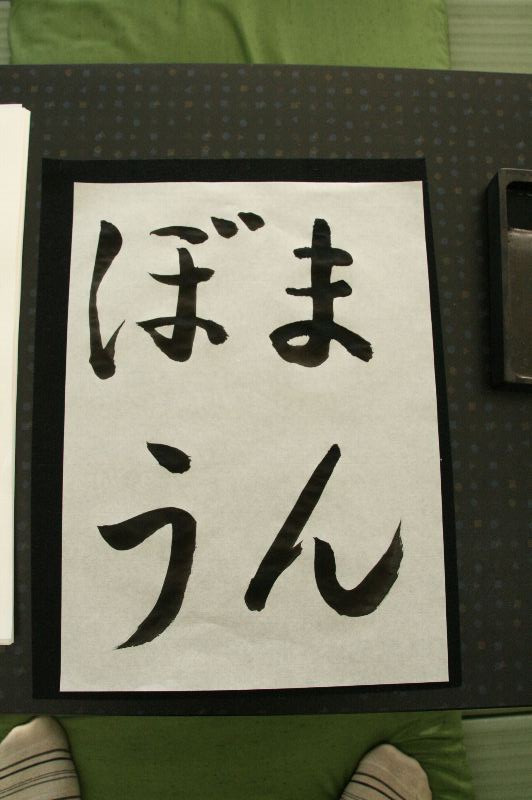 まん
ぼう